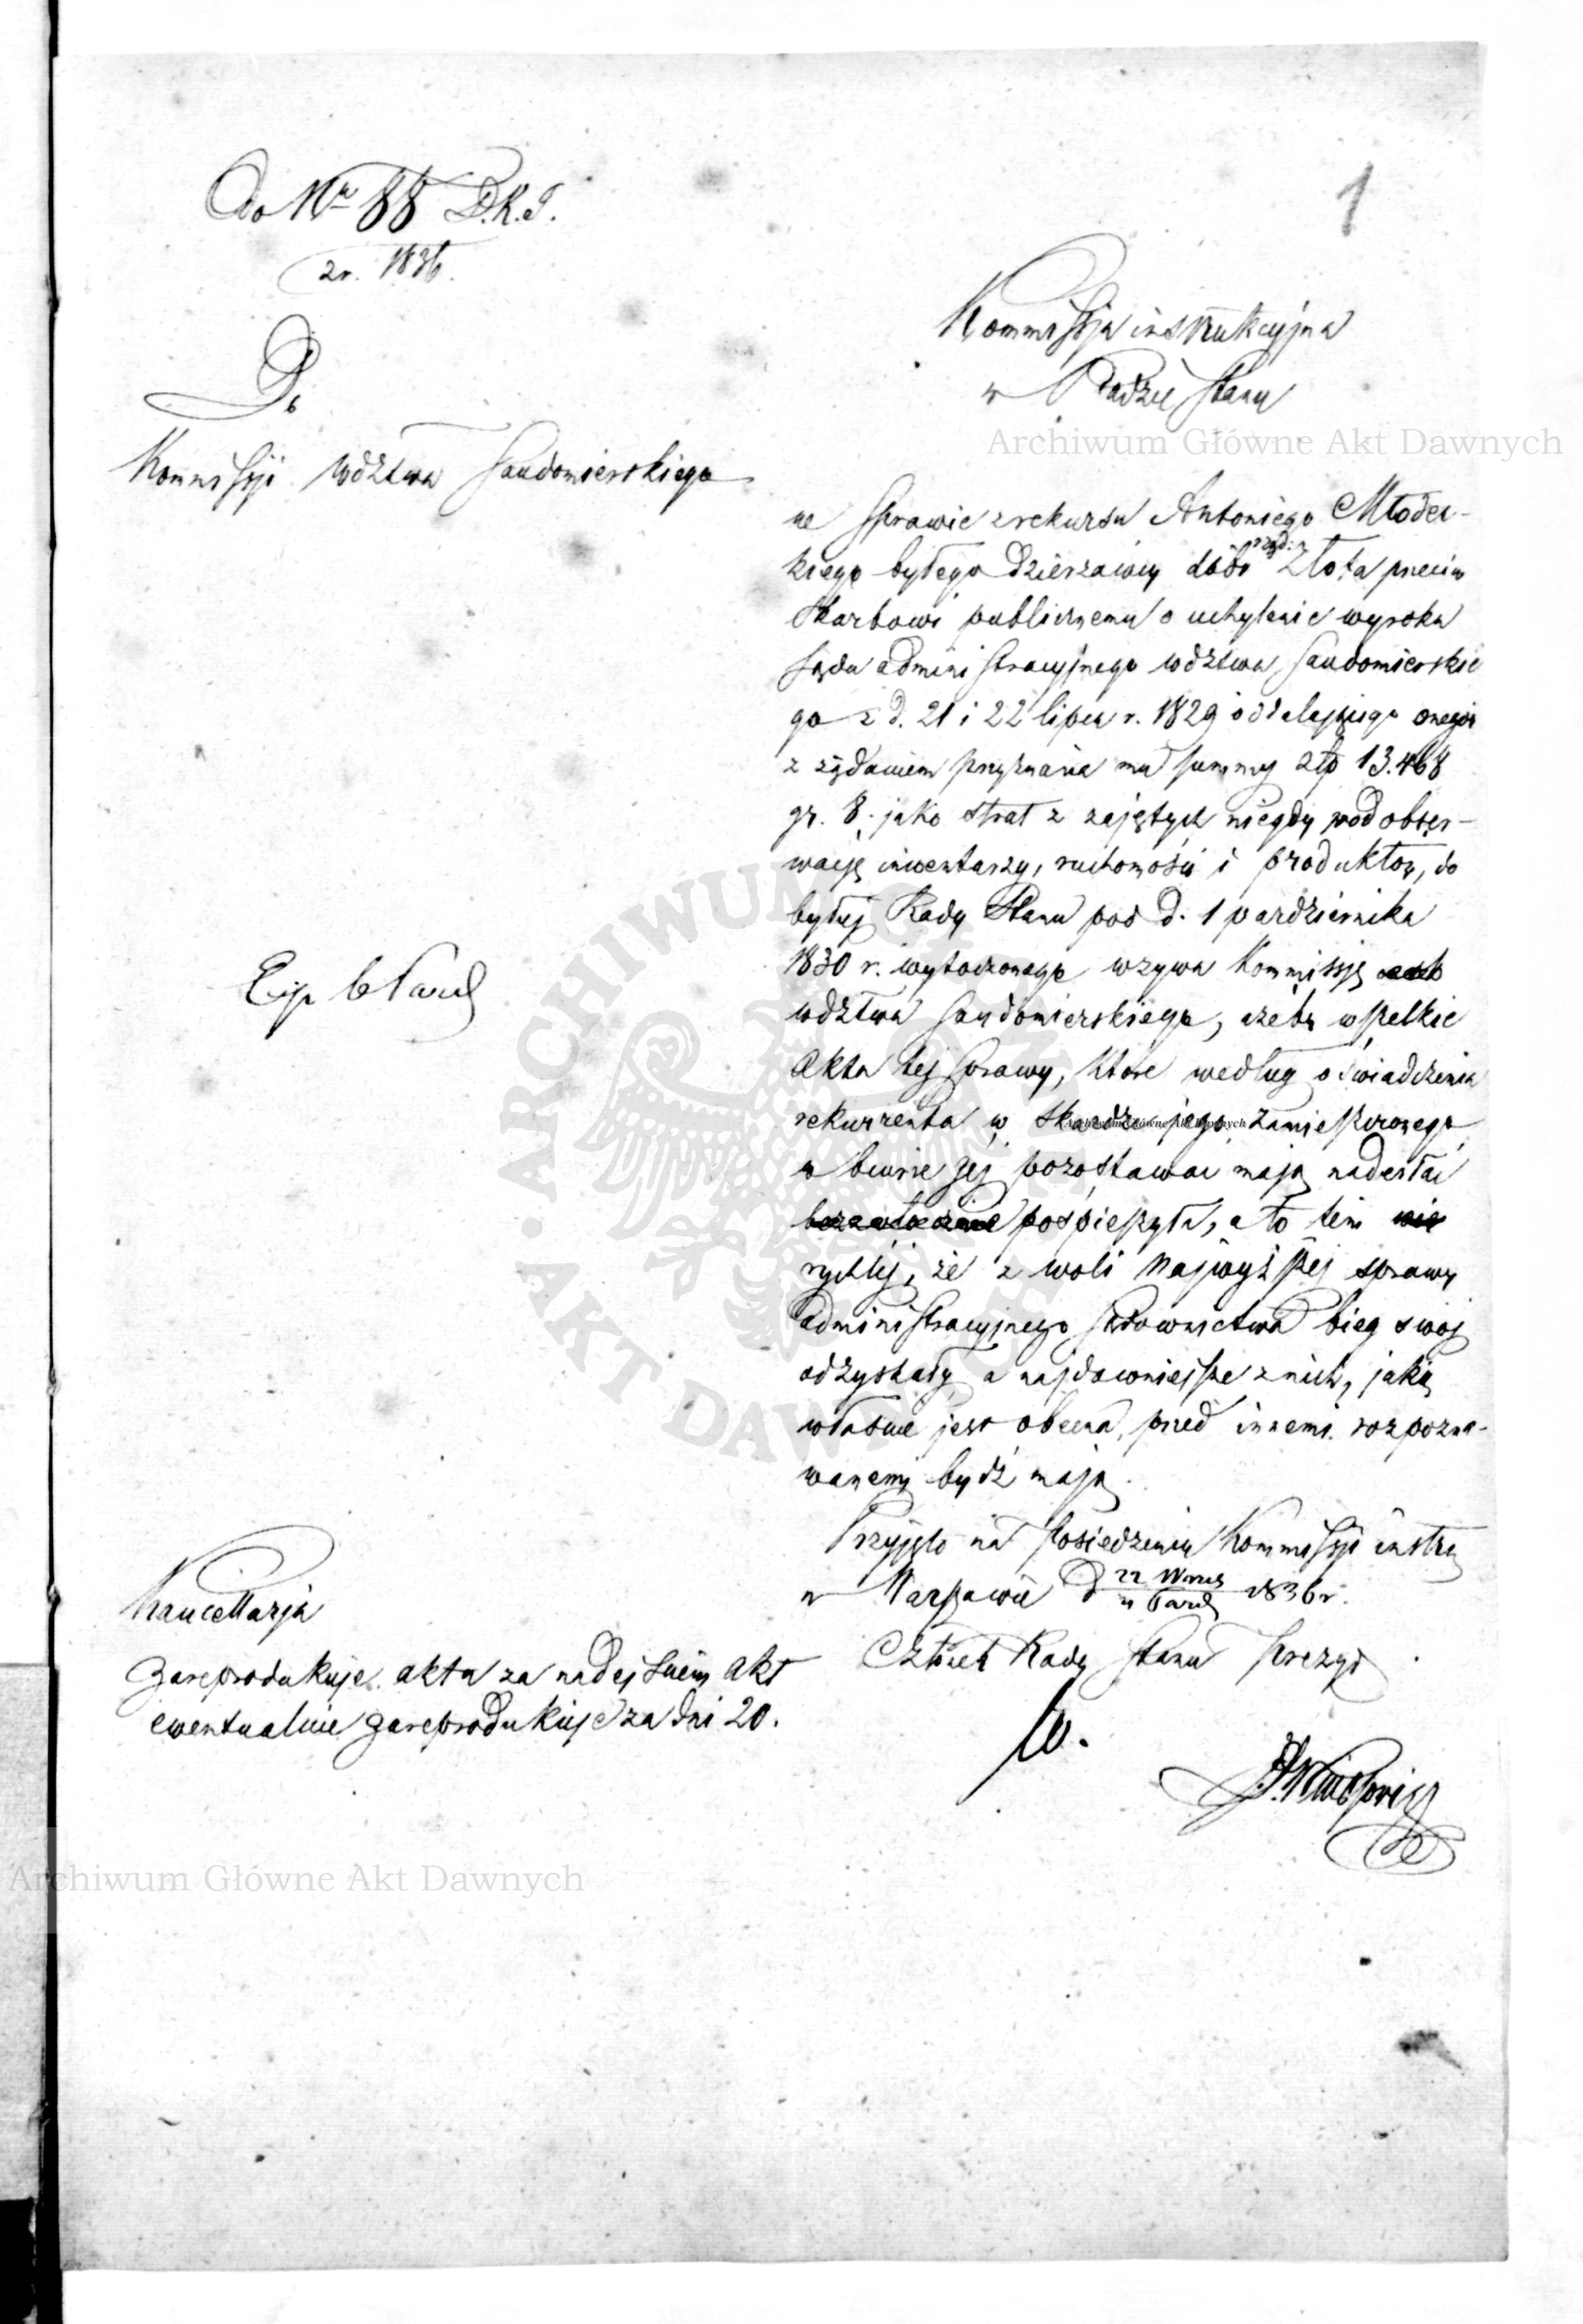 Do Nr 88 D.K.I.
z r. 1836.
1
Do
Kommissji wdztwa Sandomierskiego
Kommissja instrukcyjna
w Radzie Stanu
Archiwum Główne Akt Dawnych
we sprawie z rekursu Antoniego Młodec-
kiego byłego dzierzawcy dóbr rząd: Złota przeciw
Skarbowi publicznemu o uchylenie wyroku
Sądu administracyjnego wdztwa Sandomierskie
go z d. 21 i 22 lipca r. 1829 oddalającego onegoż
z żądaniem przyznania mu summy złp 13.468
gr. 8. jako strat z zajętych niegdy pod obser-
wację inwentarzy, ruchomości i produktów, do
byłej Rady Stanu pod d. 1 pazdziernika
1830 r. wytoczonego wzywa Kommissję
wdztwa Sandomierskiego, ażeby wszelkie
akta tej sprawy, które według oświadczenia
rekurrenta w skardze jego zamieszczonego
w biurze jej pozostawać mają nadesłać
pospieszyła, a to tem
rychlej, że z woli Najwyższej sprawy
administracyjnego sądownictwa bieg swój
odzyskały, a najdawniejsze z nich, jaką
właśnie jest obecna, przed innemi rozpozna-
wanemi bydź mają.
Przyjęto na posiedzeniu Kommissji instr.
w Warszawie d 22 Wrześ 1836 r.
4 Paźd
Członek Rady Stanu Prezyd
Exp 6 Paźd
Kancellarja
zareprodukuje akta za nadejściem akt
ewentualnie zareprodukuje za dni 20.
Archiwum Główne Akt Dawnych
Archiwum Główne Akt Dawnych
ARCHIWUM GŁÓWNE AKT DAWNYCH